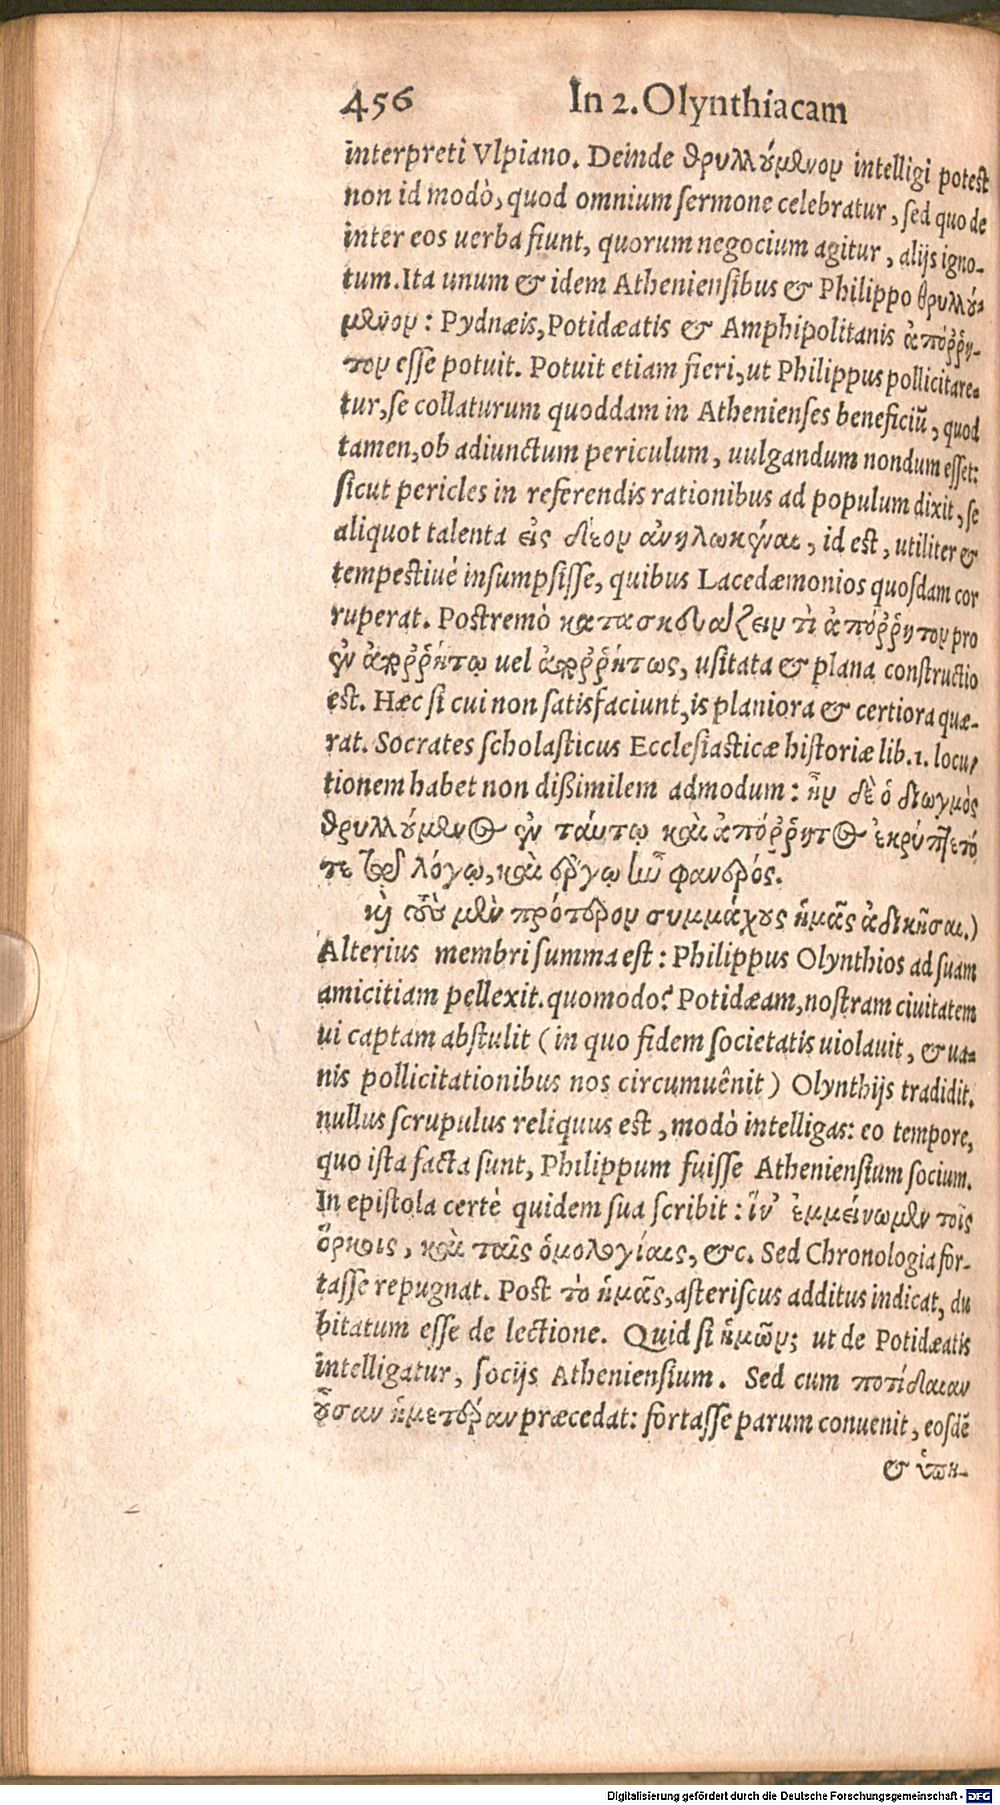 456 In 2. Olynthiacam
interpreti Vlpiano. Deinde θρυλλούμενον intelligi potest
non id modò, quod omnium sermone celebratur, sed quo de
inter eos uerba fiunt, quorum negocium agitur, alijs igno-
tum. Ita unum & idem Atheniensibus & Philippo θρυλλού-
μενον: Pydnæis, Potidæatis & Amphipolitanis ἀπόῤῥη-
τον esse potuit. Potuit etiam fieri, ut Philippus pollicitare-
tur, se collaturum quoddam in Athenienses beneficiũ, quod
tamen, ob adiunctum periculum, uulgandum nondum esset:
sicut pericles in referendis rationibus ad populum dixit, se
aliquot talenta εἰς δέον ἀνηλωκέναι, id est, utiliter &
tempestiué insumpsisse, quibus Lacedæmonios quosdam cor
ruperat. Postremò κατασκευάζειν τὶ ἀπόῤῥητον pro
ἐν ἀποῤῥήτῳ uel ἀποῤῥήτως, usitata & plana constructio
est. Hæc si cui non satisfaciunt, is planiora & certiora quæ-
rat. Socrates scholasticus Ecclesiasticæ historiæ lib. 1. locu-
tionem habet non dißimilem admodum: ἦν δὲ ὁ διωγμὸς
θρυλλούμενος ἐν ταύτῳ καὶ ἀπόῤῥητος ἐκρύπτετό
τε λόγῳ, καὶ ἔργῳ ἦν φανερός.
καὶ τοὺς μὲν πρότερον συμμάχους ἡμᾶς ἀδικῆσαι.)
Alterius membri summa est: Philippus Olynthios ad suam
amicitiam pellexit. quomodo? Potidæam, nostram ciuitatem
ui captam abstulit (in quo fidem societatis uiolauit, & ua-
nis pollicitationibus nos circumuênit) Olynthijs tradidit.
nullus scrupulus reliquus est, modò intelligas: eo tempore,
quo ista facta sunt, Philippum fuisse Atheniensium socium.
In epistola certè quidem sua scribit: ἵν' ἐμμείνωμεν τοῖς
ὅρκοις, καὶ ταῖς ὁμολογίαις, &c. Sed Chronologia for-
tasse repugnat. Post τὸ ἡμᾶς, asteriscus additus indicat, du
bitatum esse de lectione. Quid si ἡμῶν; ut de Potidæatis
intelligatur, socijs Atheniensium. Sed cum ποτίδαιαν
οὖσαν ἡμετέραν præcedat: fortasse parum conuenit, eosdẽ
& ὑπη-
Digitalisierung gefördert durch die Deutsche Forschungsgemeinschaft - DFG